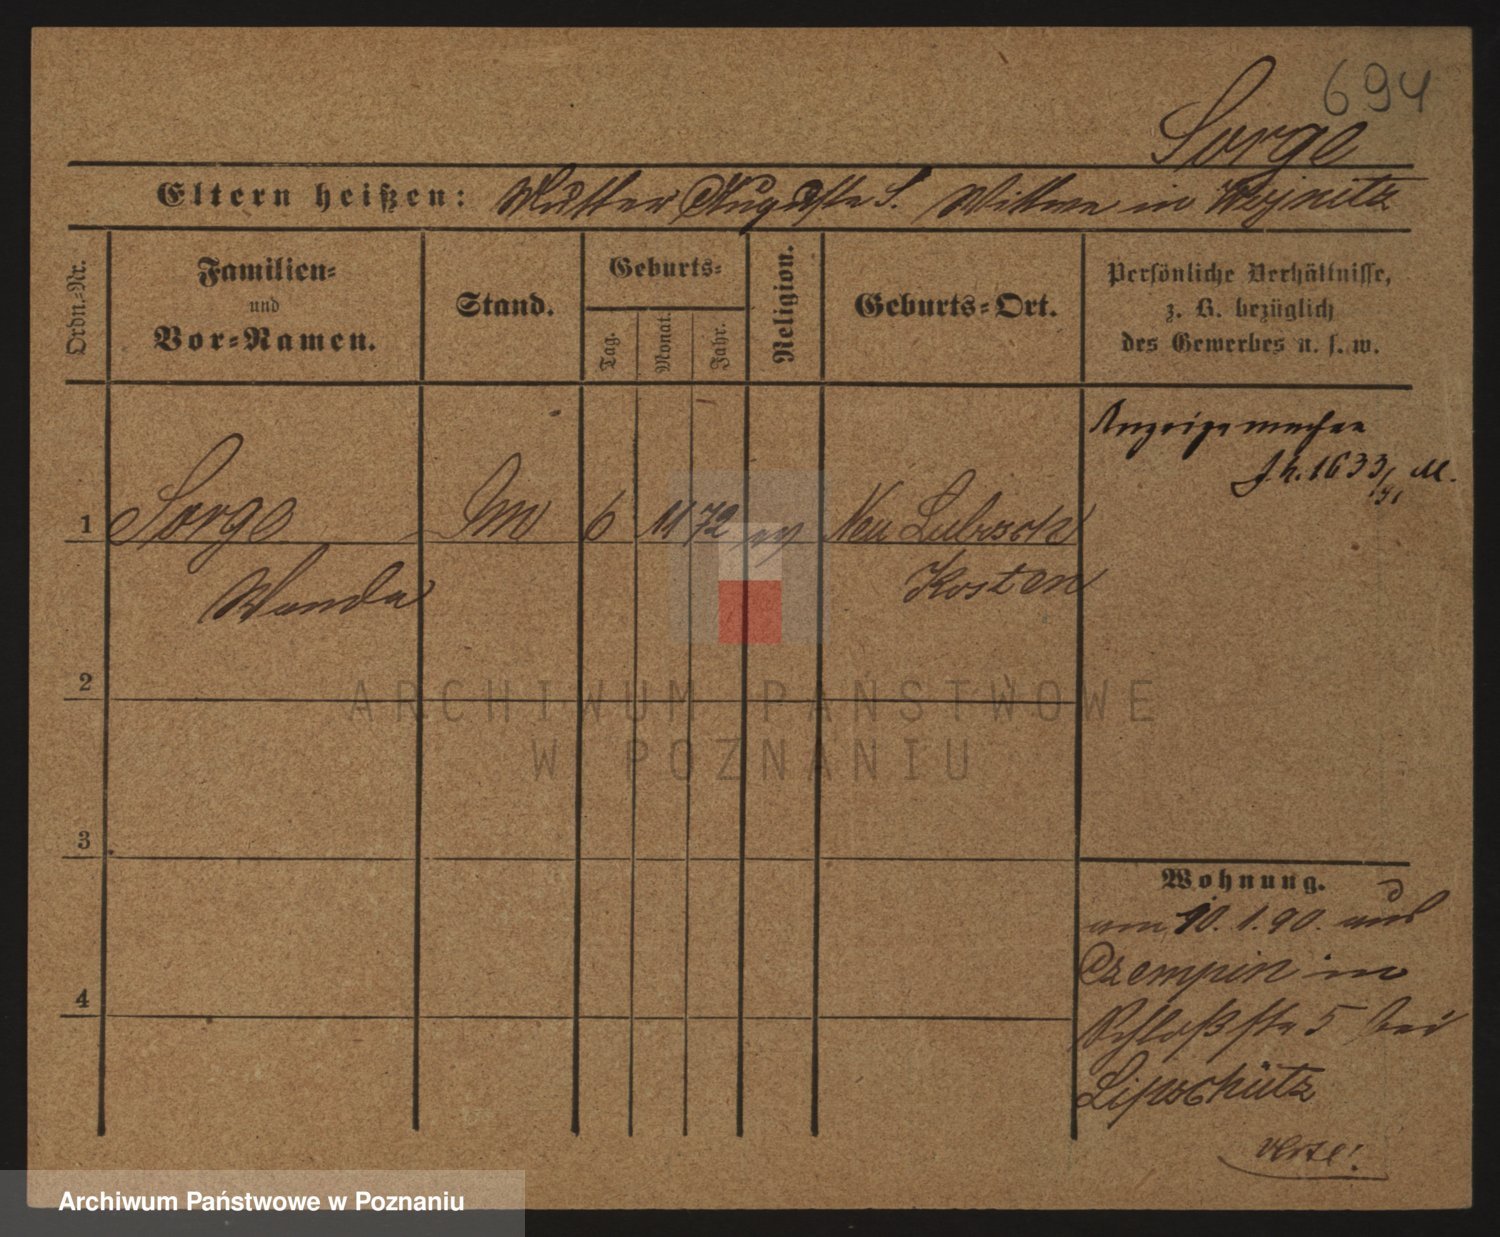 694
Sorge
Eltern heißen: Mutter Auguste S. Wittwe in Wojnitz
Ordn.-Nr.
Familien-
und
Vor-Namen.
Stand.
Geburts-
Tag.
Monat.
Jahr.
Religion.
Geburts-Ort.
Persönliche Verhältnisse,
z. B. bezüglich
des Gewerbes u. s. w.
Anzeige machen
J. h. 1633/91 M.
1 Sorge 6 11 72 ev Neu Lubosch
Wanda Kosten
2
3
4
Wohnung.
am 10.1.90. aus
Czempin in
Schloßstr 5 bei
Lipschütz
ARCHIWUM PAŃSTWOWE
W POZNANIU
Archiwum Państwowe w Poznaniu